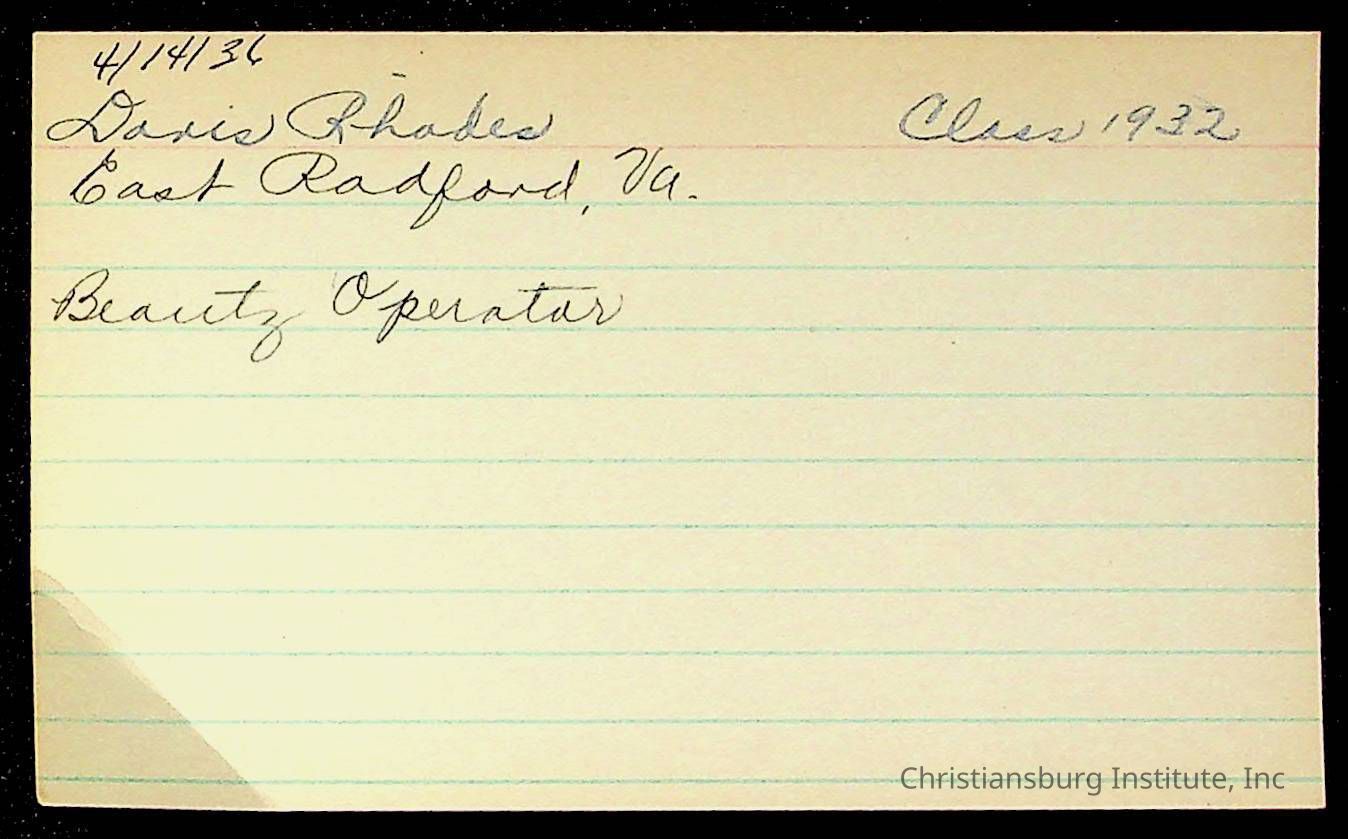 4/14/36
Doris Rhodes Class 1932
East Radford, Va.
Beauty Operator
Christiansburg Institute, Inc